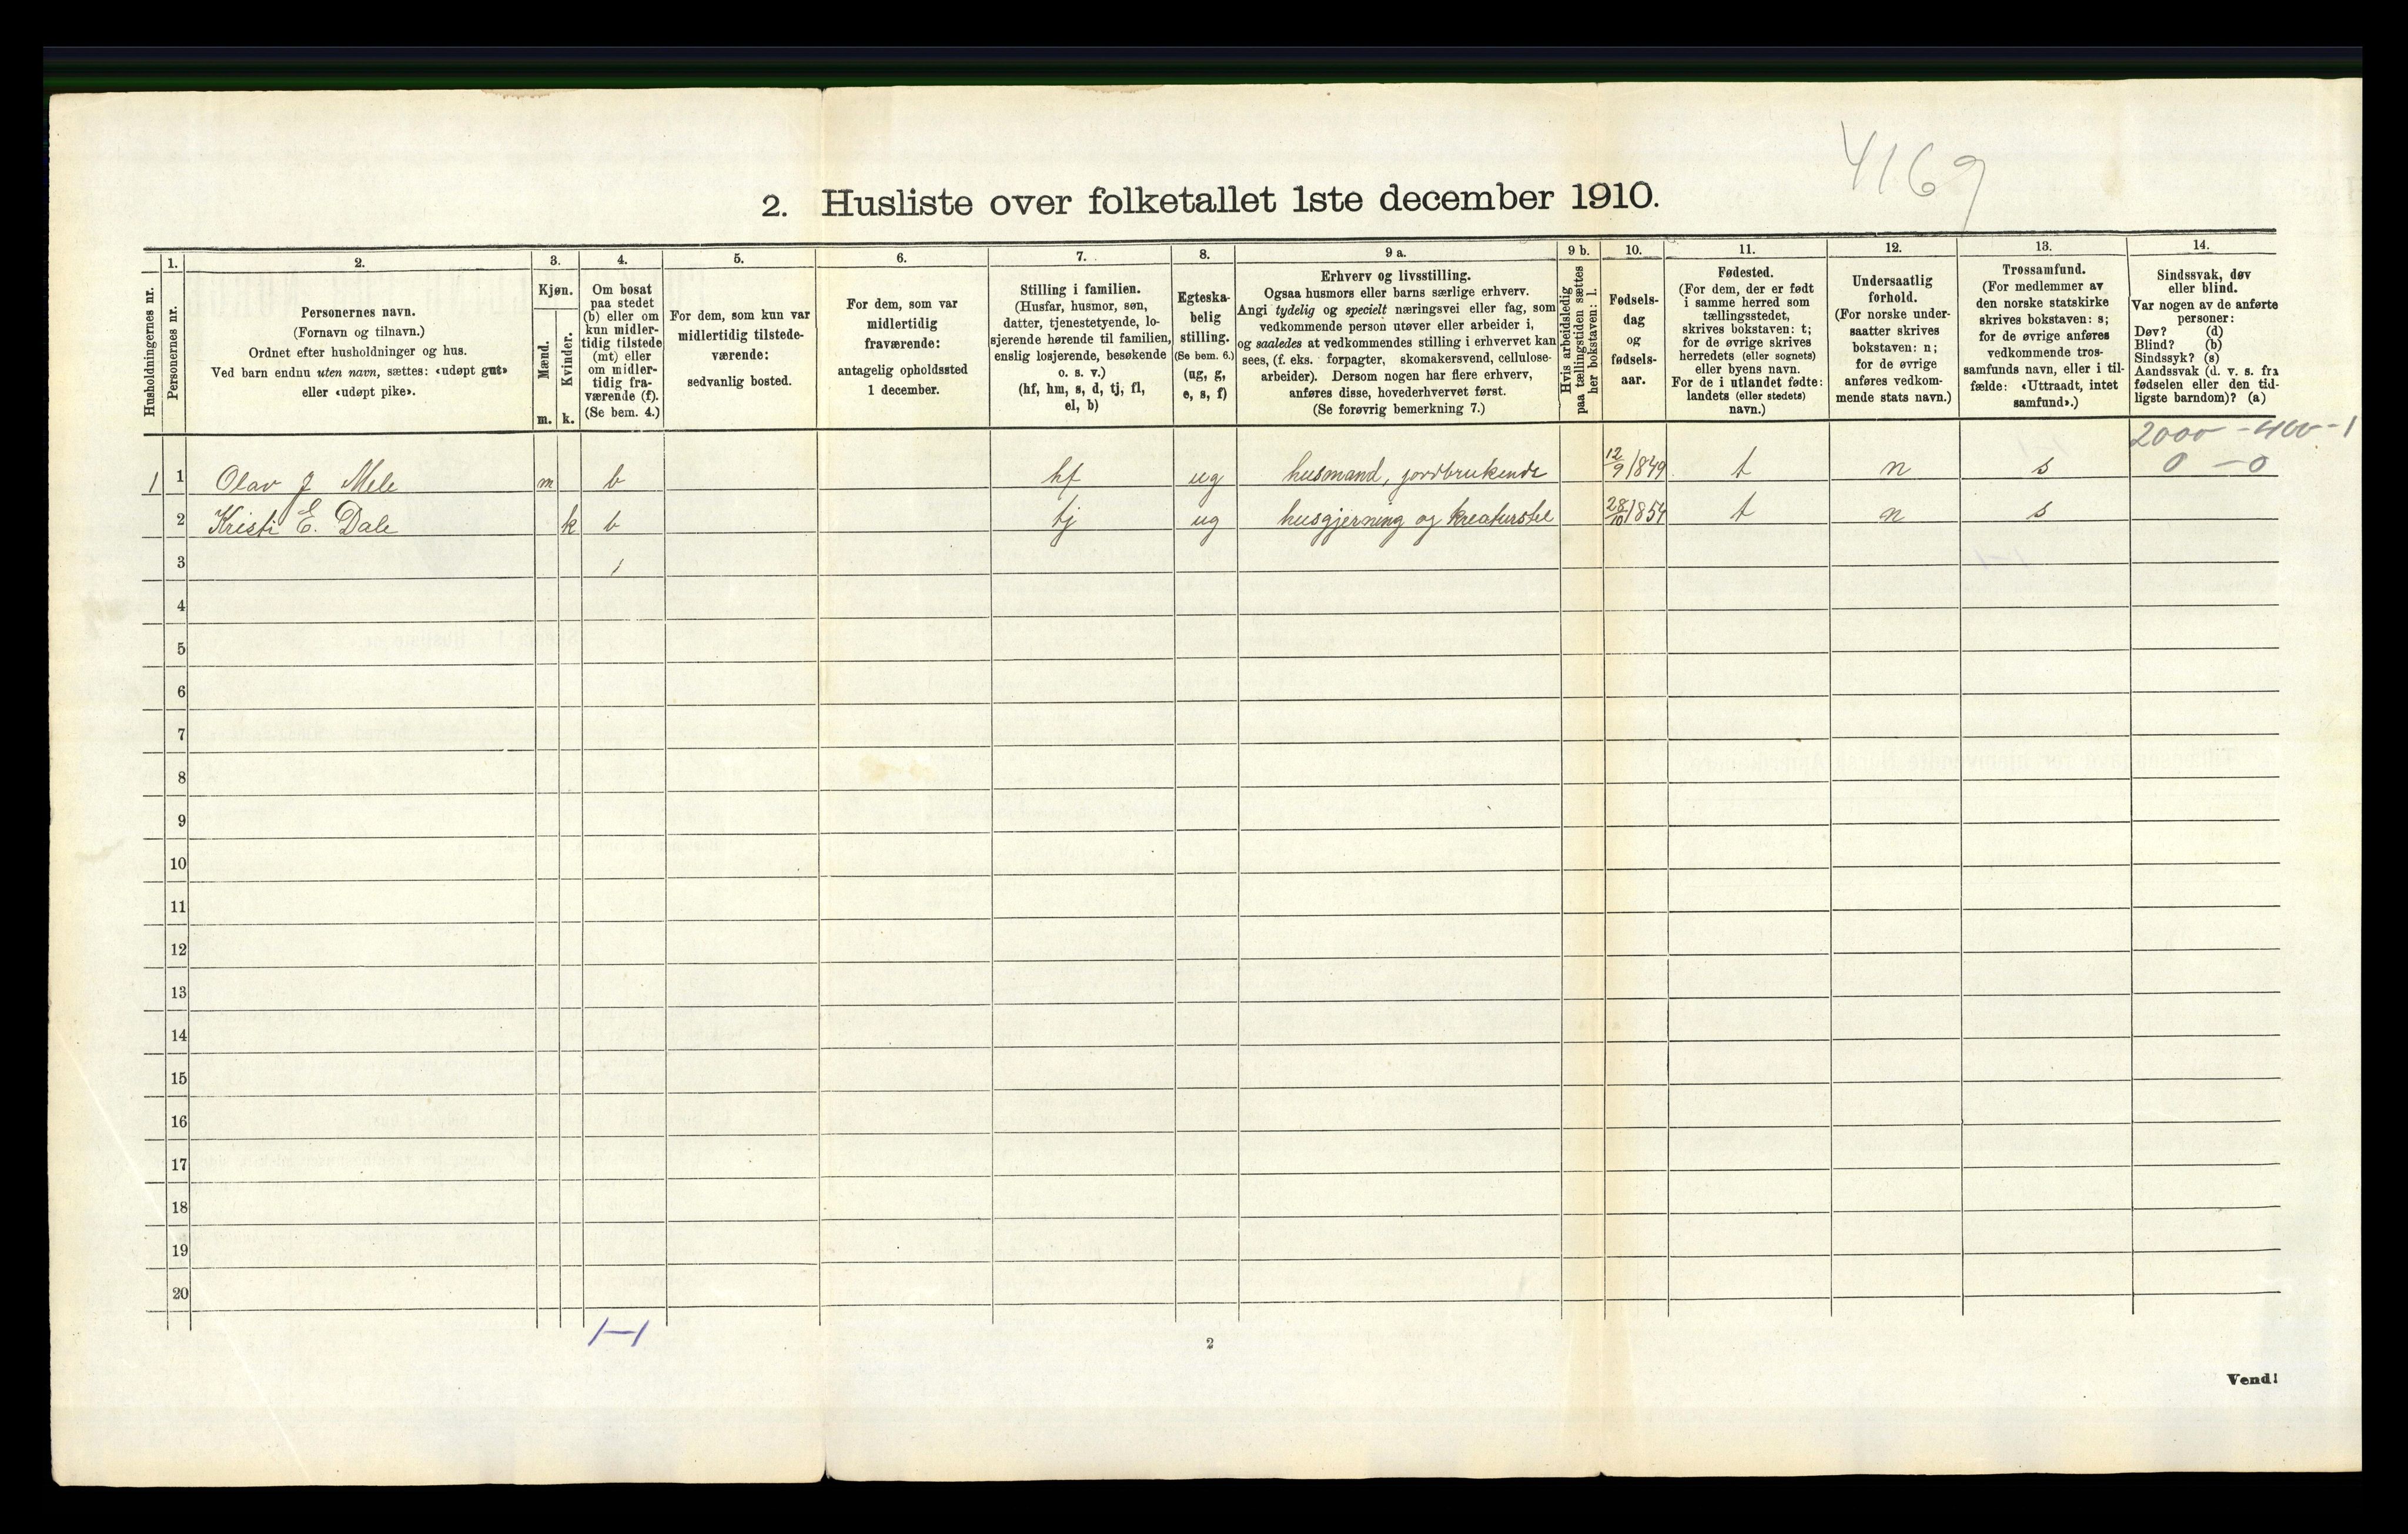 4169
2. Husliste over folketallet 1ste december 1910.
Husholdningernes nr.
1.
Personernes nr.
2.
Personernes navn.
(Fornavn og tilnavn.)
Ordnet efter husholdninger og hus.
Ved barn endnu uten navn, sættes: «udøpt gut»
eller «udøpt pike».
3.
Kjøn.
Mænd.
Kvinder.
m. k.
4.
Om bosat
paa stedet
(b) eller om
kun midler-
tidig tilstede
(mt) eller
om midler-
tidig fra-
værende (f).
(Se bem. 4.)
5.
For dem, som kun var
midlertidig tilstede-
værende:
sedvanlig bosted.
6.
For dem, som var
midlertidig
fraværende:
antagelig opholdssted
1 december.
7.
Stilling i familien.
(Husfar, husmor, søn,
datter, tjenestetyende, lo-
sjerende hørende til familien,
enslig losjerende, besøkende
o. s. v.)
(hf, hm, s, d, tj, fl,
el, b)
8.
Egteska-
belig
stilling.
(Se bem. 6.)
(ug, g,
e, s, f)
9 a.
Erhverv og livsstilling.
Ogsaa husmors eller barns særlige erhverv.
Angi tydelig og specielt næringsvei eller fag, som
vedkommende person utøver eller arbeider i,
og saaledes at vedkommendes stilling i erhvervet kan
sees, (f. eks. forpagter, skomakersvend, cellulose-
arbeider). Dersom nogen har flere erhverv,
anføres disse, hovederhvervet først.
(Se forøvrig bemerkning 7.)
9 b.
Hvis arbeidsledig
paa tællingstiden sættes
her bokstaven: l.
10.
Fødsels-
dag
og
fødsels-
aar.
11.
Fødested.
(For dem, der er født
i samme herred som
tællingsstedet,
skrives bokstaven: t;
for de øvrige skrives
herredets (eller sognets)
eller byens navn.
For de i utlandet fødte:
landets (eller stedets)
navn.)
12.
Undersaatlig
forhold.
(For norske under-
saatter skrives
bokstaven: n;
for de øvrige
anføres vedkom-
mende stats navn.)
13.
Trossamfund.
(For medlemmer av
den norske statskirke
skrives bokstaven: s;
for de øvrige anføres
vedkommende tros-
samfunds navn, eller i til-
fælde: «Uttraadt, intet
samfund».)
14.
Sindssvak, døv
eller blind.
Var nogen av de anførte
personer:
Døv? (d)
Blind? (b)
Sindssyk? (s)
Aandssvak (d. v. s. fra
fødselen eller den tid-
ligste barndom)? (a)
2000 - 400 - 1
0 - 0
1 1 Olav J Mele m b hf ug husmand, jordbrukende 12/9 1849 t n s
2 Kristi E. Dale k b tj ug husgjerning og kreaturstel 28/10 1854 t n s
3
4
5
6
7
8
9
10
11
12
13
14
15
16
17
18
19
20
1-1
2
Vend!